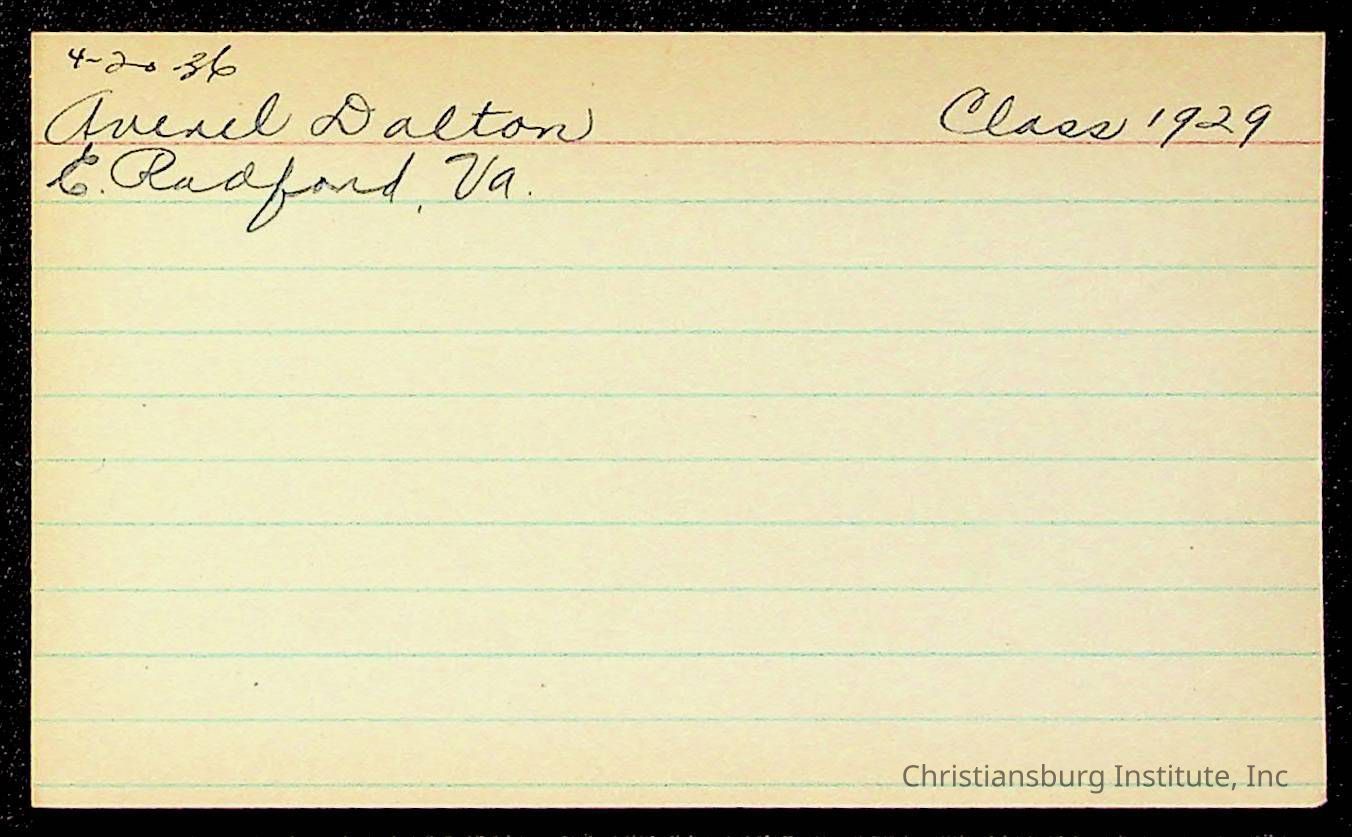 4-20 36
Averel Dalton Class 1929
E. Radford, Va.
Christiansburg Institute, Inc